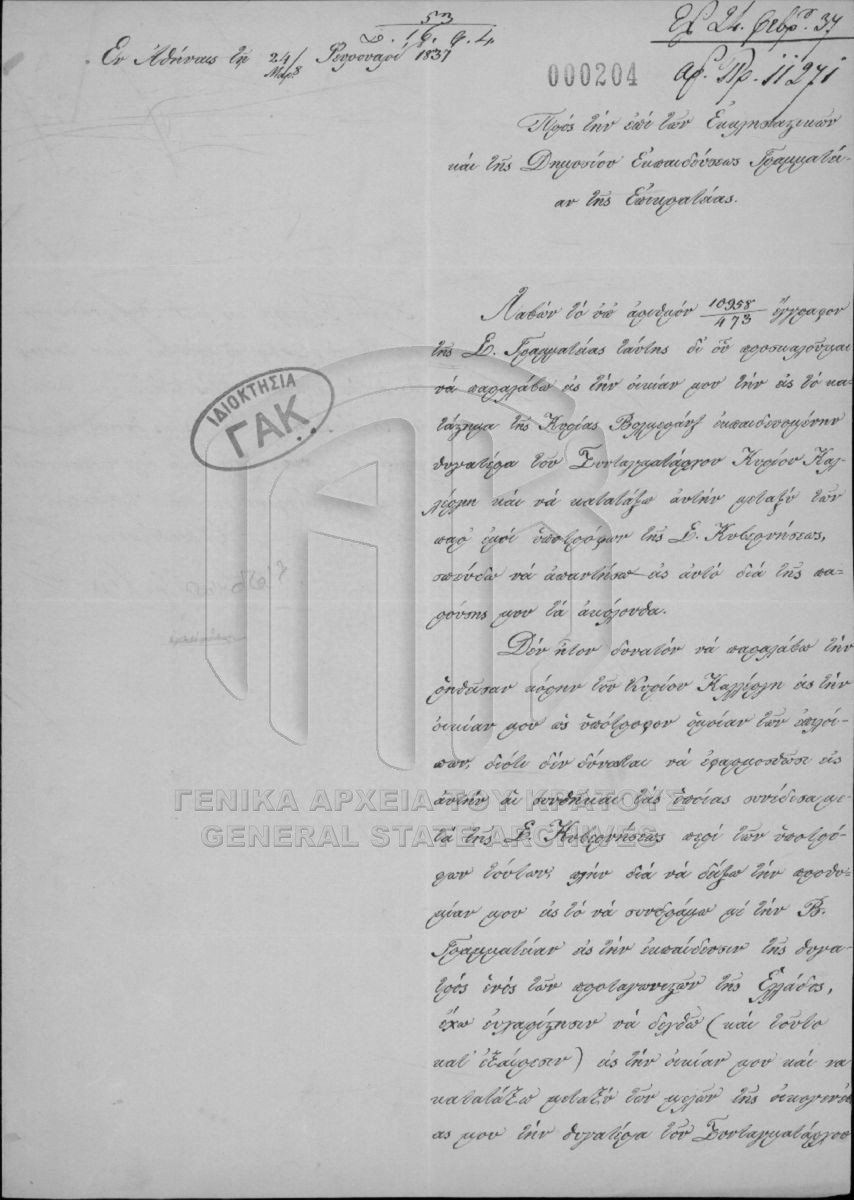 53
Δ. 16. q. 4.
Ελ 24. Φεβρ. 37
Εν Αθήναις τη 24/ Φεβρουαρί 1837
Μαρ 8
000204
αρ. Πρ. 11271
Πρός τήν επί των Εκκλησιαστικών
και της Δημοσίου Εκπαιδεύσεως Γραμματεί-
αν της Επικρατείας.
Λαβών τό υπ' αριθμόν 10958/473 έγγραφον
της Β. Γραμματείας ταύτης δι' ού προσκαλούμαι
νά παραλάβω εις τήν οικίαν μου τήν εις τό κα-
τάστημα της Κυρίας Βολμεράνζ εκπαιδευομένην
θυγατέρα του Συνταγματάρχου Κυρίου Καλ-
λέργη και νά κατατάξω αυτήν μεταξύ των
παρ' εμοί υποτρόφων της Β. Κυβερνήσεως,
σπεύδω νά απαντήσω εις αυτό διά της πα-
ρούσης μου τά ακόλουθα.
Δέν ήτον δυνατόν νά παραλάβω τήν
ρηθείσαν κόρην του Κυρίου Καλλέργη εις τήν
οικίαν μου ως υπότροφον ομοίαν των επιλοί-
πων, διότι δέν δύναται νά εφαρμοσθώσι εις
αυτήν αι συνθήκαι τάς οποίας συνέδεσα με-
τά της Β. Κυβερνήσεως περί των υποτρό-
φων τούτων, πλήν διά νά δείξω τήν προθυ-
μίαν μου εις τό νά συνδράμω μέ τήν Β.
Γραμματείαν εις τήν εκπαίδευσιν της θυγα-
τρός ενός των πρωταγωνιστών της Ελλάδος,
έχω ευχαρίστησιν νά δεχθώ (και τούτο
κατ' εξαίρεσιν) εις τήν οικίαν μου και νά
κατατάξω μεταξύ των μελών της οικογενεί-
ας μου τήν θυγατέρα του Συνταγματάρχου
ΙΔΙΟΚΤΗΣΙΑ
ΓΑΚ
ΓΕΝΙΚΑ ΑΡΧΕΙΑ ΤΟΥ ΚΡΑΤΟΥΣ
GENERAL STATE ARCHIVES